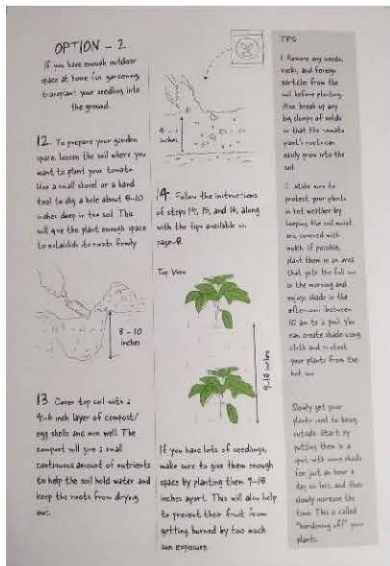 OPTION - 2
If you have enough outdoor
space at home for gardening,
transplant your seedling into
the ground.
12. To prepare your garden
space, loosen the soil where you
want to plant your tomato.
Use a small shovel or a hand
tool to dig a hole about 8-10
inches deep in the soil. This
will give the plant enough space
to establish its roots firmly.
8 - 10
inches
13. Cover top soil with a
4-6 inch layer of compost/
egg shells and mix well. The
compost will give a small
continuous amount of nutrients
to help the soil hold water and
keep the roots from drying
out.
inches
14. Follow the instructions
of steps 14, 15, and 16, along
with the tips available on
page-8.
Top View
9-18 inches
If you have lots of seedlings,
make sure to give them enough
space by planting them 9-18
inches apart. This will also help
to prevent their fruit from
getting burned by too much
sun exposure.
TIPS
1. Remove any weeds,
rocks, and foreign
particles from the
soil before planting.
Also break up any
big clumps of
so that the tomato
plant's roots can
easily grow into the
soil.
2. Make sure to
protect your plants
in hot weather by
keeping the soil moist
and covered with
mulch. If possible,
plant them in an area
that gets the full sun
in the morning and
enjoys shade in the
afternoon (between
10 am to 2 pm). You
can create shade using
cloth and protect
your plants from the
hot sun.
Slowly get your
plants used to being
outside. Start by
putting them in a
spot with some shade
for just an hour a
day or less, and then
slowly increase the
time. This is called
"hardening off" your
plants.